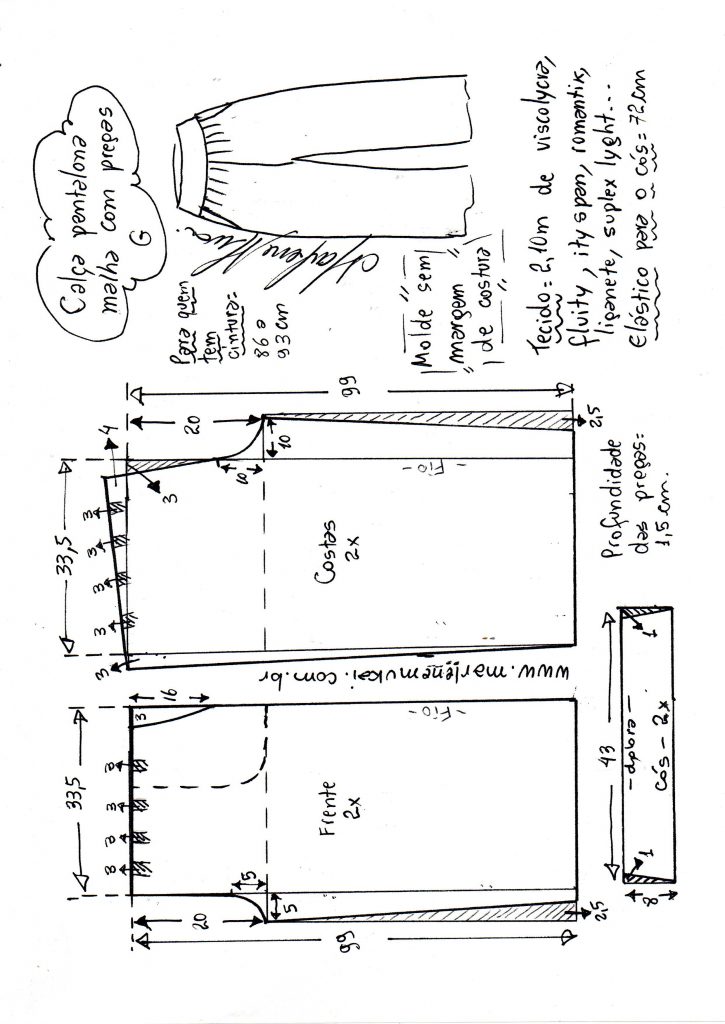 Calça pantalona
malha com pregas
G
Para quem
tem
cintura=
86 a
93 cm
Marlene Mukai
Molde sem
margem
de costura
Tecido = 2,10m de viscolycra,
fluity, ity span, romantik,
liganete, suplex lyght...
Elástico para o cós = 72cm
33,5
3
3
3
3
3
4
3
20
99
10
10
- Fio -
Costas
2x
2,5
Profundidade
das pregas=
1,5 cm.
www.marlenemukai.com.br
33,5
3
3
3
3
3
16
20
99
5
5
- Fio -
Frente
2x
2,5
43
1
1
8
- dobra -
cós - 2x